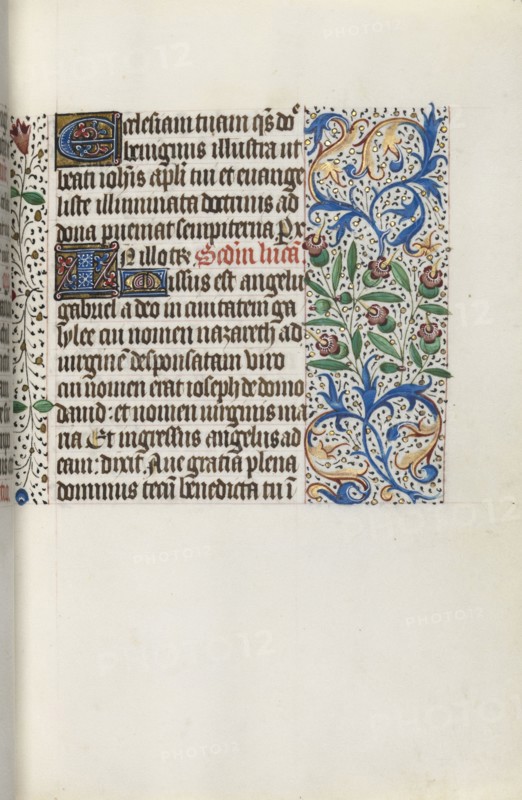 Ecclesiam tuam q̄s dn̄e
benignus illustra ut
beati ioh̄is apl̄i tui et euange
liste illuminata doctrinis ad
dona pueniat sempiterna Px
In illo tꝑe Scd̄m lucā
Missus est angelus
gabriel a deo in ciuitatem ga
lylee cui nomen nazareth ad
uirginē desponsatam uiro
cui nomen erat ioseph de domo
dauid: et nomen uirginis ma
ria Et ingressus angelus ad
eam: dixit Aue gratia plena
dominus tecū benedicta tu ī